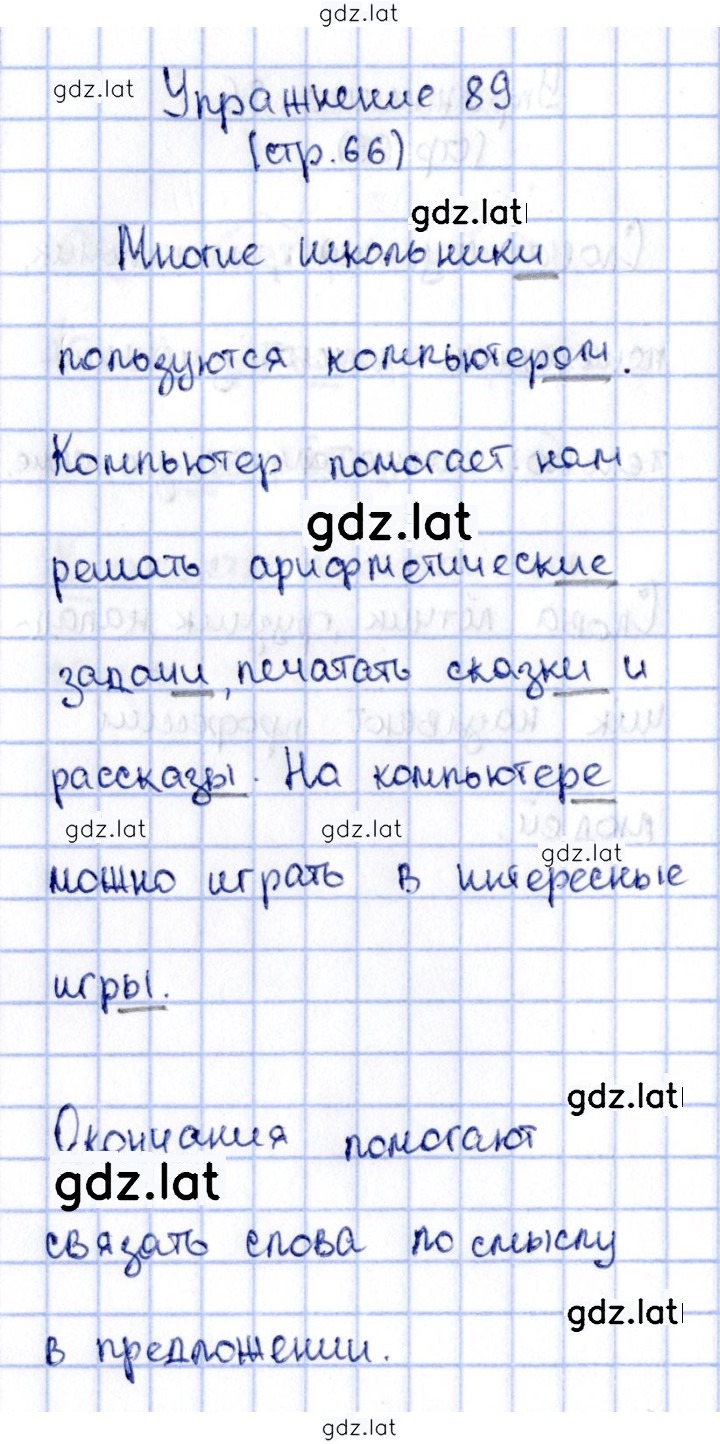 gdz.lat
gdz.lat
Упражнение 89
(стр. 66)
gdz.lat
Многие школьники
пользуются компьютером.
Компьютер помогает нам
gdz.lat
решать арифметические
задачи, печатать сказки и
рассказы. На компьютере
gdz.lat gdz.lat
gdz.lat
можно играть в интересные
игры.
gdz.lat
Окончания помогают
gdz.lat
связать слова по смыслу
gdz.lat
в предложении.
gdz.lat